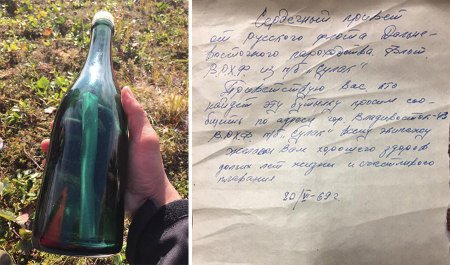 Сердечный привет
от русского флота Дальне-
восточного пароходства. Флот
ВРХФ из п/б "Сулак"
Приветствую Вас, кто
найдёт эту бутылку просим соо-
бщить по адресу "гор. Владивосток-43
ВРХФ п/б "Сулак" всему экипажу
желаем Вам хорошего здоровья
долгих лет жизни и счастливого
плавания
20/VI-69 г.